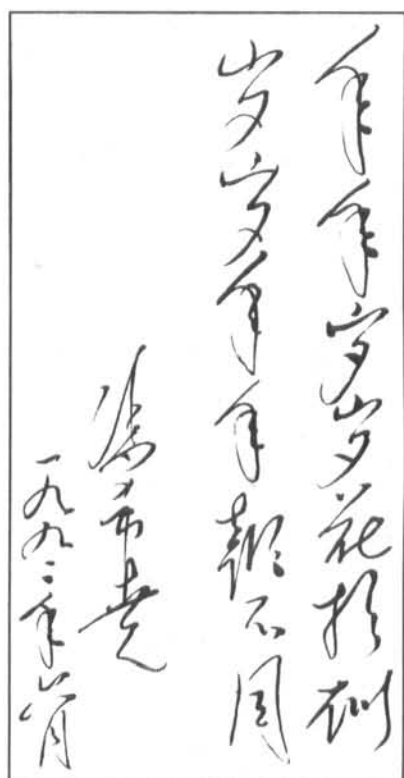 年年岁岁花相似
岁岁年年不同
希尧
一九九二年六月